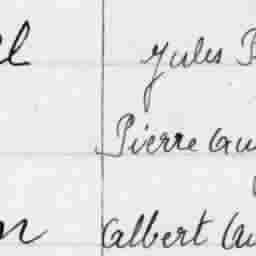 el Jules P
Pierre Au
n Albert Au